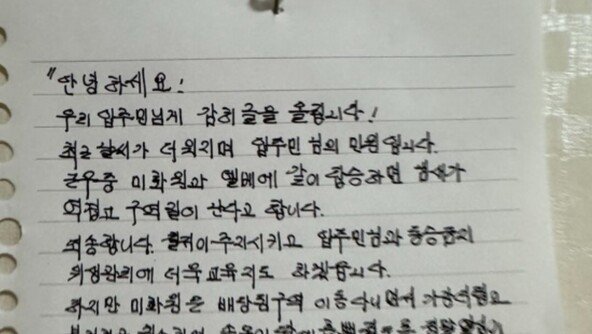 "안녕하세요!
우리 입주민님게 감히 글을 올립니다!
최근 날씨가 더워지며 입주민 님의 민원입니다.
근무중 미화원과 엘베에 같이 탑승하면 냄새가
역겹고 구역질이 난다고 합니다.
죄송합니다. 철저히 주지시키고 입주민님과 동승금지
위생관리에 더욱 교육지도 하겠습니다.
하지만 미화원은 배당된구역 이동